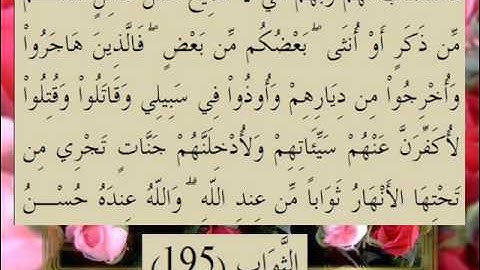 مِّن ذَكَرٍ أَوْ أُنثَى ۖ بَعْضُكُم مِّن بَعْضٍ ۖ فَالَّذِينَ هَاجَرُواْ
وَأُخْرِجُواْ مِن دِيَارِهِمْ وَأُوذُواْ فِي سَبِيلِي وَقَاتَلُواْ وَقُتِلُواْ
لأُكَفِّرَنَّ عَنْهُمْ سَيِّئَاتِهِمْ وَلأُدْخِلَنَّهُمْ جَنَّاتٍ تَجْرِي مِن
تَحْتِهَا الأَنْهَارُ ثَوَاباً مِّن عِندِ اللّهِ ۗ وَاللّهُ عِندَهُ حُسْنُ
الثَّوَابِ (195)